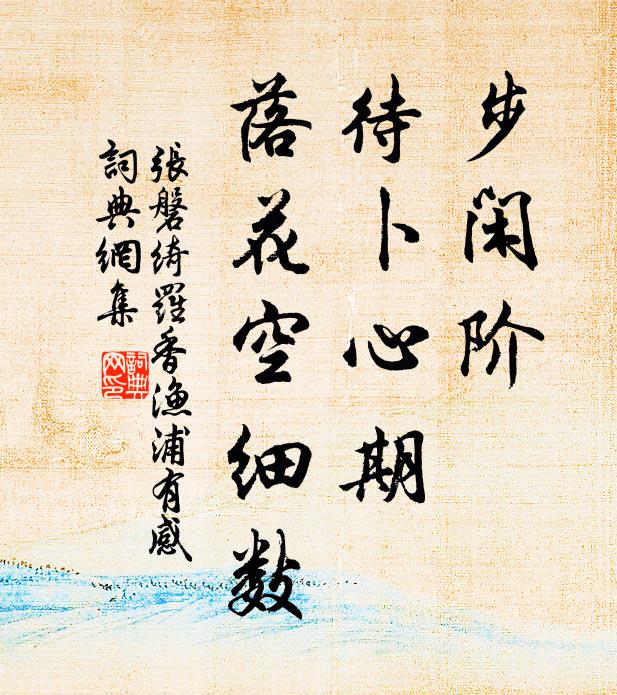 步闲阶
待卜心期
落花空细数
張磐綺羅香漁浦有感
詞典網集
詞典
网印